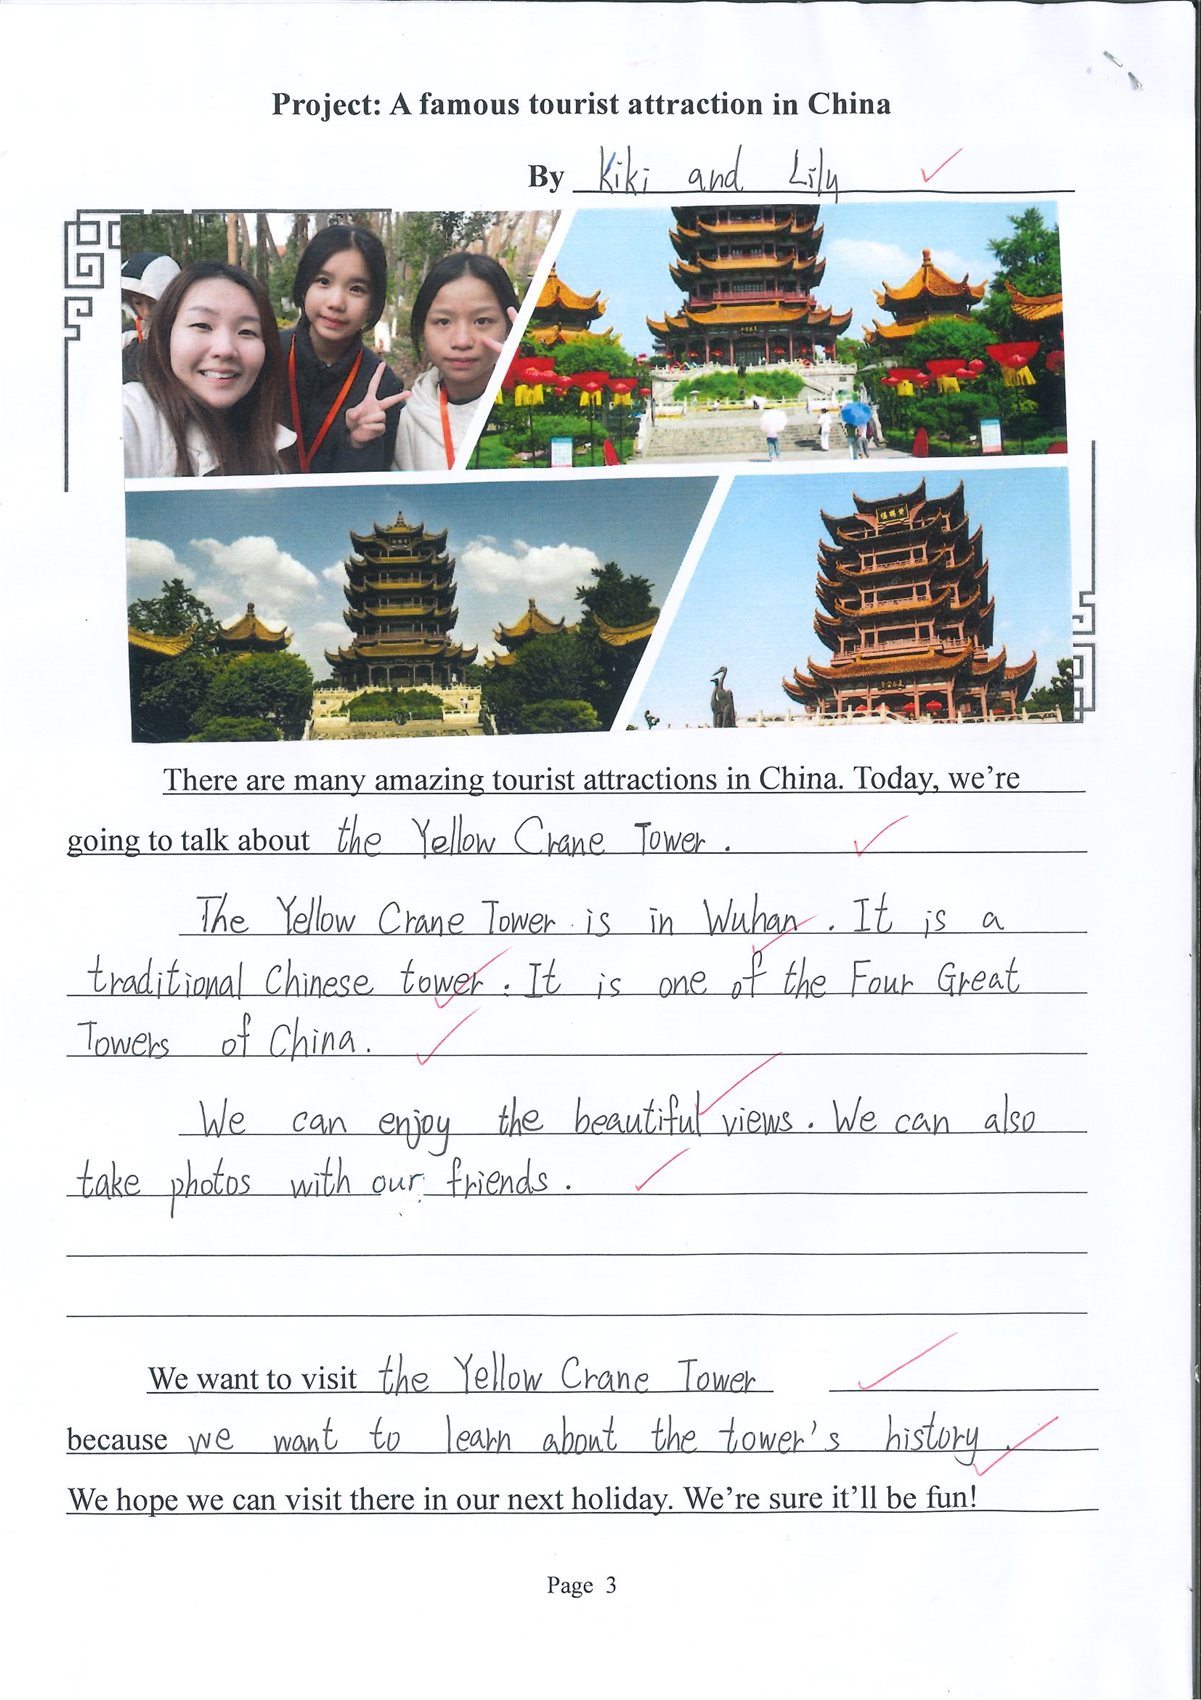 Project: A famous tourist attraction in China
By Kiki and Lily
黄鹤楼
There are many amazing tourist attractions in China. Today, we're
going to talk about the Yellow Crane Tower.
The Yellow Crane Tower is in Wuhan. It is a
traditional Chinese tower. It is one of the Four Great
Towers of China.
We can enjoy the beautiful views. We can also
take photos with our friends.
We want to visit the Yellow Crane Tower
because we want to learn about the tower's history.
We hope we can visit there in our next holiday. We're sure it'll be fun!
Page 3